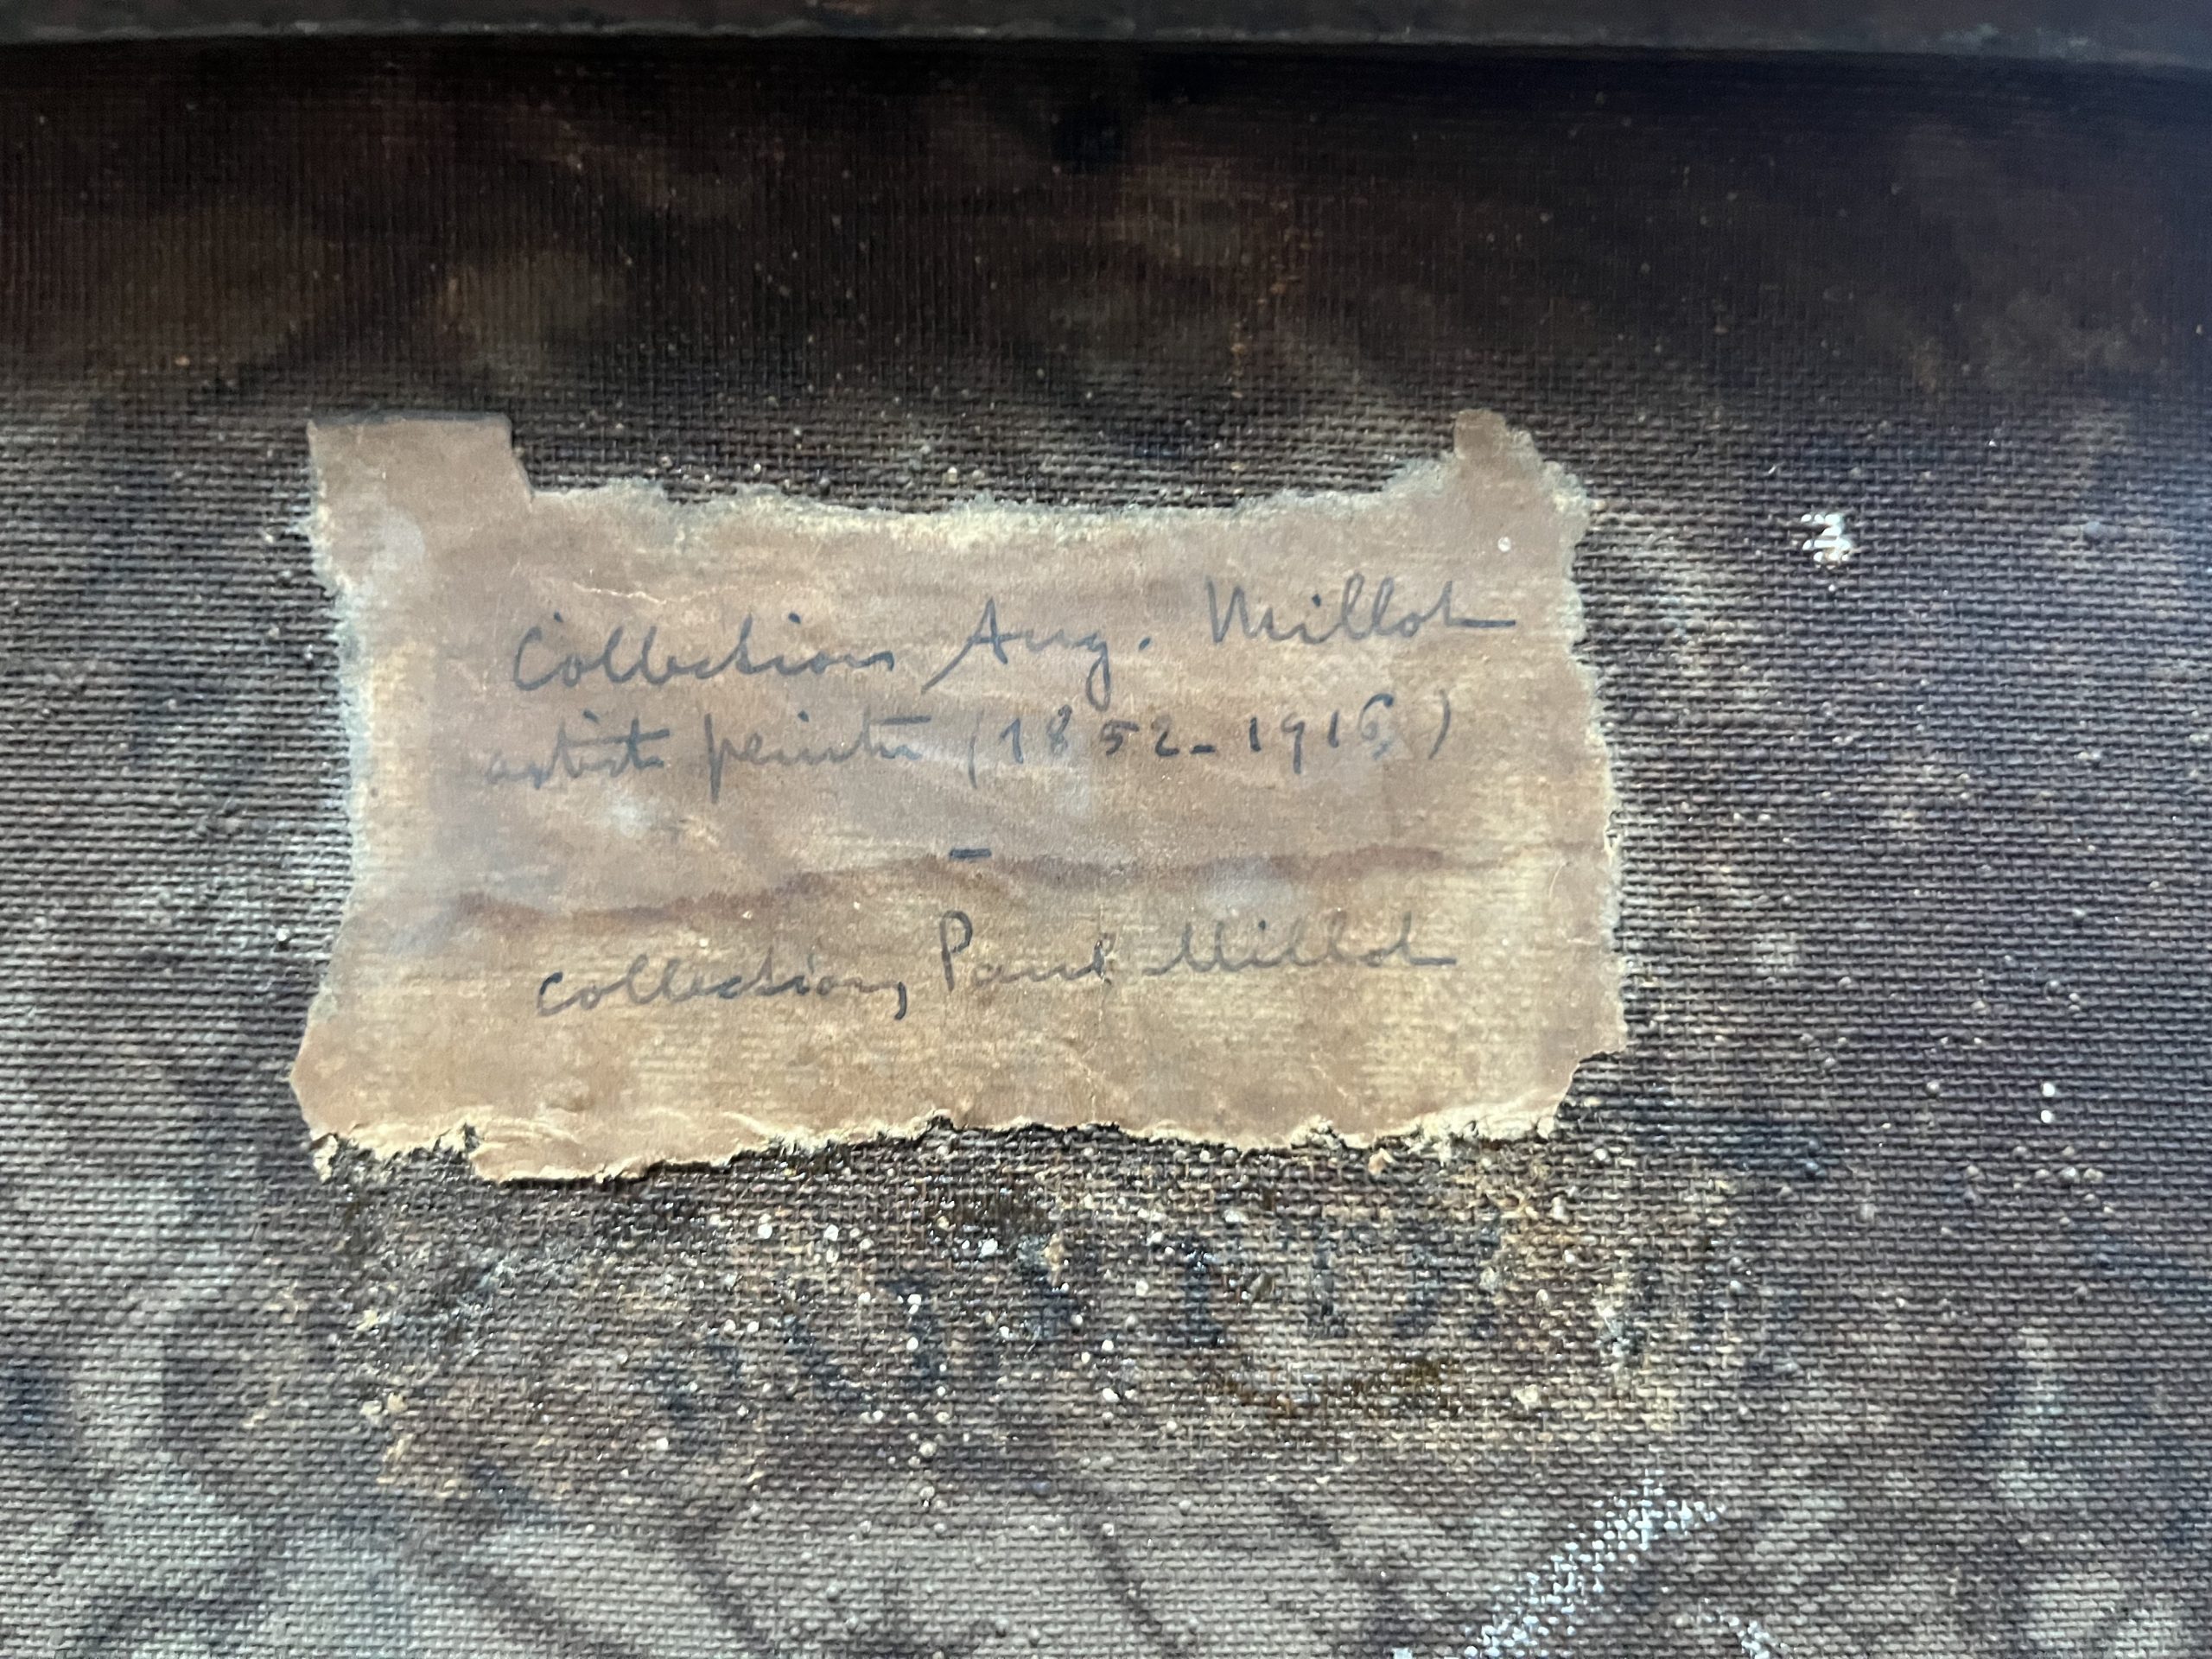 Collection Aug. Millot
artiste peintre (1852-1916)
-
collection, Paul Millot